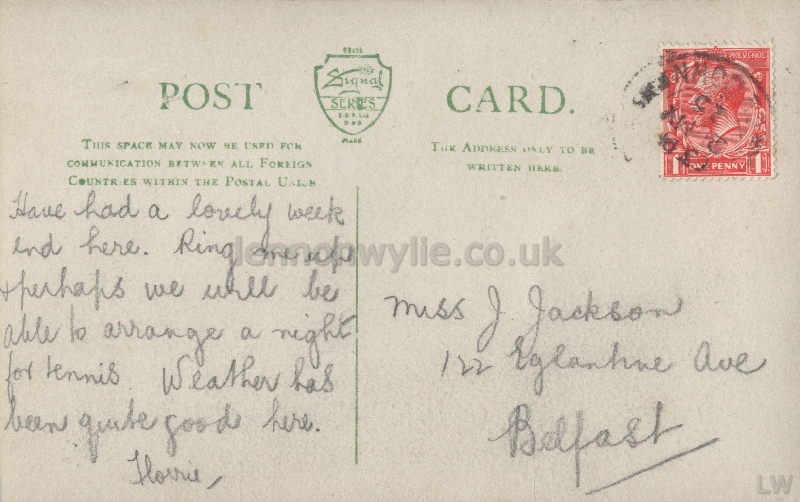 POST CARD.
TRADE
Signal
SERIES
MARK
THIS SPACE MAY NOW BE USED FOR
COMMUNICATION BETWEEN ALL FOREIGN
COUNTRIES WITHIN THE POSTAL UNION.
THE ADDRESS ONLY TO BE
WRITTEN HERE.
REVENUE
ONE PENNY
1 1
Have had a lovely week
end here. Ring me up
& perhaps we will be
able to arrange a night
for tennis. Weather has
been quite good here.
Florrie
Miss J Jackson
122 Eglantine Ave
Belfast
lennonwylie.co.uk
LW